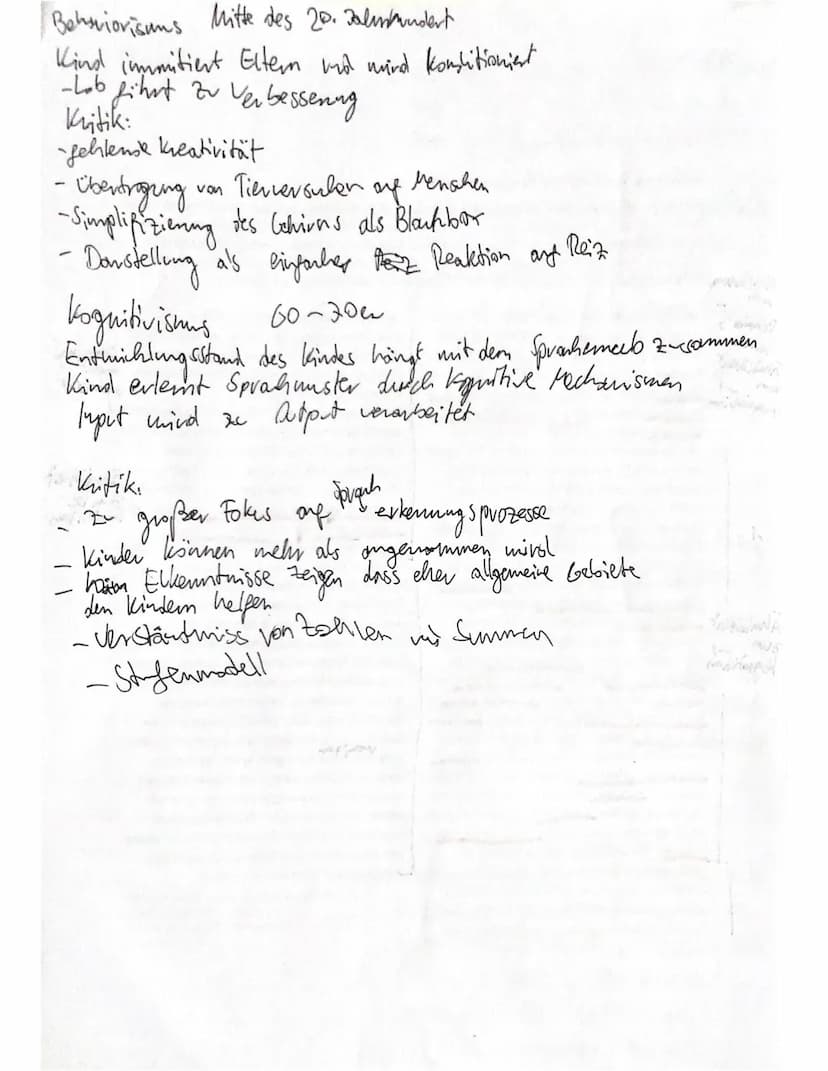 Behaviorismus Mitte des 20. Jahrhundert
Kind immitiert Eltern und wird konditioniert
-Lob führt zu Verbesserung
Kritik:
-fehlende Kreativität
- Übertragung von Tierversuchen auf Menschen
-Simplifizierung des Gehirns als Blackbox
- Darstellung als einfacher Reaktion auf Reiz
Kognitivismus 60-70er
Entwicklungsstand des Kindes hängt mit dem Spracherwerb zusammen
Kind erlernt Sprachmuster durch kognitive Mechanismen
Input wird zu Output verarbeitet
Kritik:
- Zu großer Fokus auf Spracherkennungsprozesse
- Kinder können mehr als angenommen wird
- Erkenntnisse zeigen dass eher allgemeine Gebiete
den Kindern helfen
- Verständniss von Zahlen und Summen
- Stufenmodell